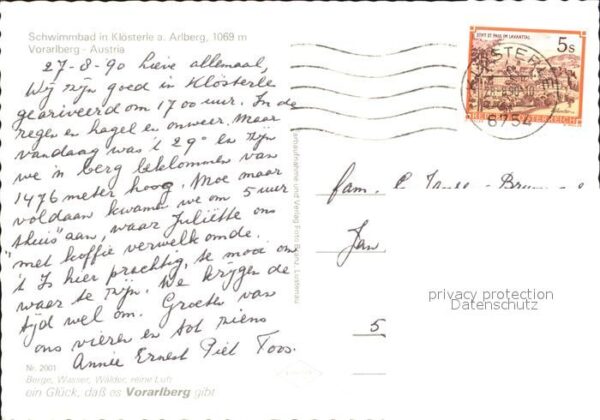 Schwimmbad in Klösterle a. Arlberg, 1069 m
Vorarlberg - Austria
27-8-90 lieve allemaal,
Wij zijn goed in Klösterle
geariveerd om 1700 uur. In de
regen en hagel en onweer. Maar
vandaag was 't 29° en zijn
we 'n berg beklommen van
1476 meter hoog. Moe maar
voldaan kwamen we om 5 uur
"thuis" aan, waar Juliëtte ons
met koffie verwelkomde.
't Is hier prachtig, te mooi om
waar te zijn. We krijgen de
tijd wel om. Groeten van
ons vieren en tot ziens
Annie Ernest Piet Toos.
Nr. 2001
Berge, Wasser, Wälder, reine Luft
ein Glück, daß es Vorarlberg gibt
und Verlag Foto Lustenau
STIFT ST. PAUL IM LAVANTTAL
5s
REPUBLIK ÖSTERREICH
KLÖSTERLE
6754
fam. C
Jan
5
privacy protection
Datenschutz